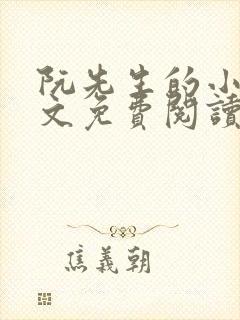 阮先生的小
文免費閱讀
焦義朝